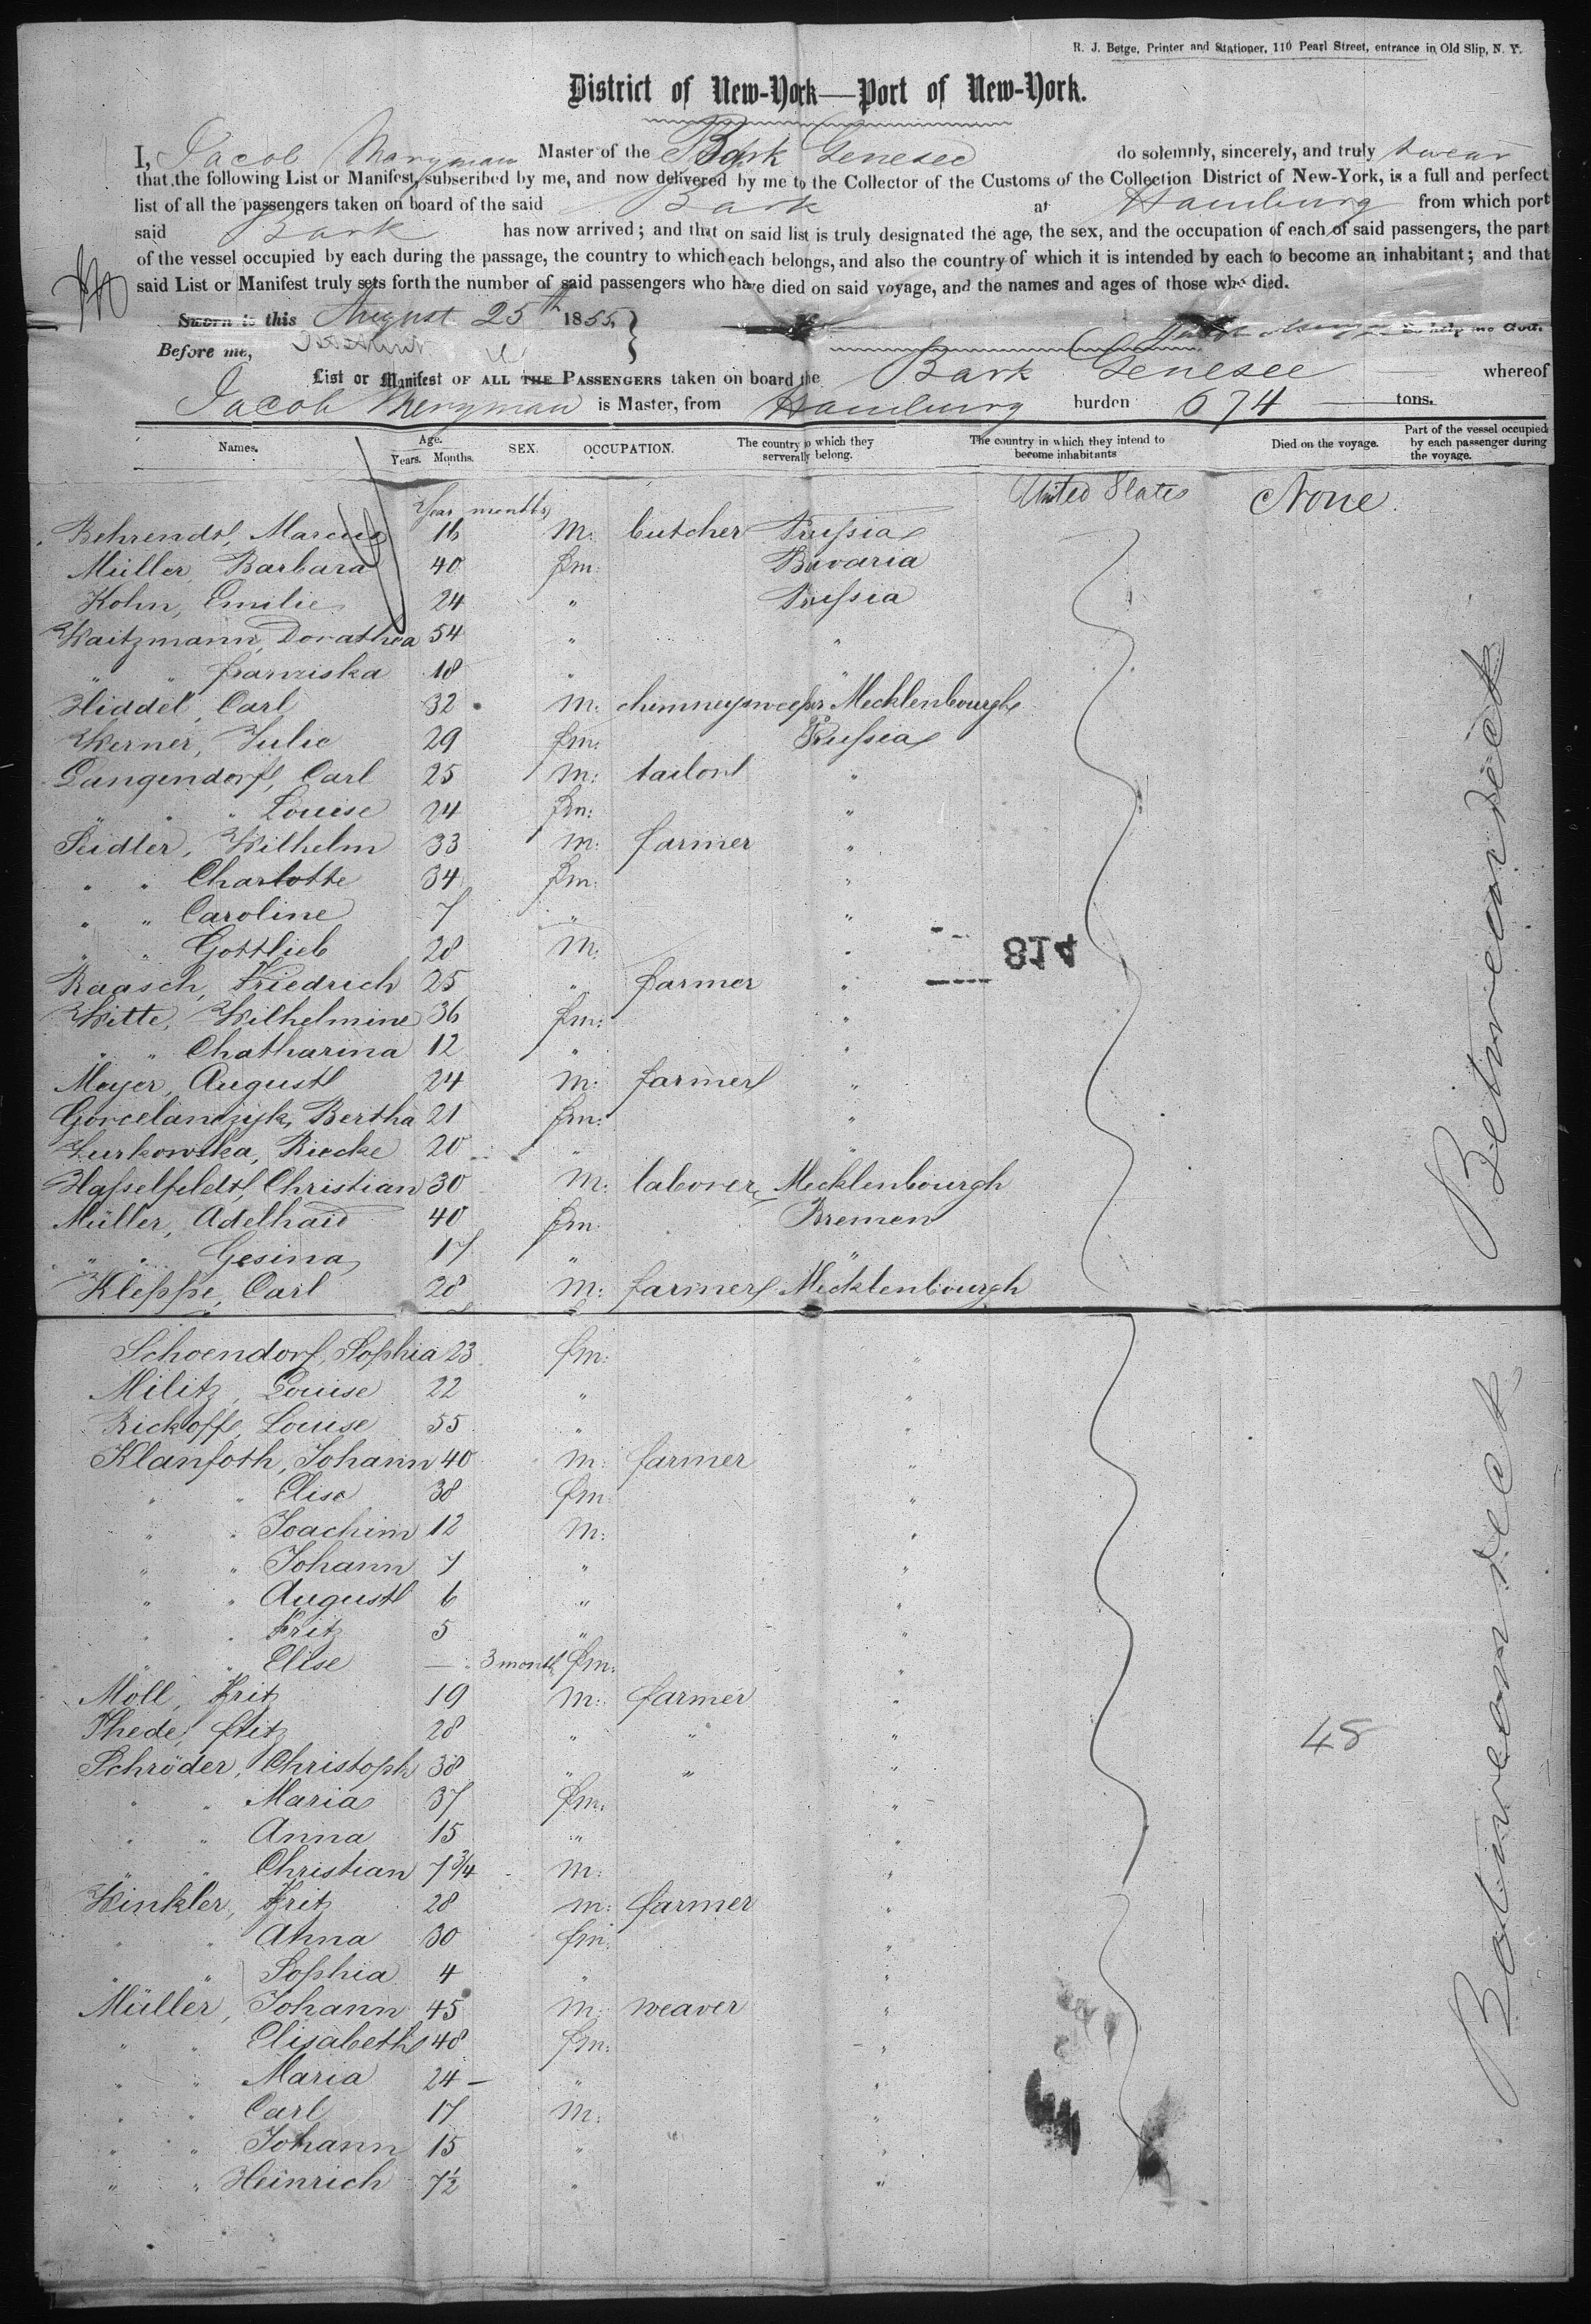 R. J. Betge, Printer and Stationer, 110 Pearl Street, entrance in Old Slip, N. Y.
District of New-York—Port of New-York.
I, Jacob Merryman Master of the Bark Genesee do solemnly, sincerely, and truly swear
that the following List or Manifest, subscribed by me, and now delivered by me to the Collector of the Customs of the Collection District of New-York, is a full and perfect
list of all the passengers taken on board of the said Bark at Hamburg from which port
said Bark has now arrived; and that on said list is truly designated the age, the sex, and the occupation of each of said passengers, the part
of the vessel occupied by each during the passage, the country to which each belongs, and also the country of which it is intended by each to become an inhabitant; and that
said List or Manifest truly sets forth the number of said passengers who have died on said voyage, and the names and ages of those who died.
Sworn to this August 25th 1855, So help me God.
Before me,
List or Manifest OF ALL THE PASSENGERS taken on board the Bark Genesee whereof
Jacob Merryman is Master, from Hamburg burden 674 tons.
Names. Age. Years. Months. SEX. OCCUPATION. The country to which they serverally belong. The country in which they intend to become inhabitants Died on the voyage. Part of the vessel occupied by each passenger during the voyage.
Year months United States None
Behrendt, Marcus 16 m: butcher Prussia
Müller, Barbara 40 fm: Bavaria
Kohn, Emilie 24 " Prussia
Waitzmann, Dorathea 54 " "
" " Franziska 18 " "
Hiddel, Carl 32 m: chimneysweeper Mecklenbourgh
Werner, Julie 29 fm: Prussia
Langendorf, Carl 25 m: tailor "
" " Louise 24 fm: "
Seidler, Wilhelm 33 m: farmer "
" " Charlotte 34 fm: "
" " Caroline 7 " "
" " Gottlieb 28 m: "
814
Raasch, Friedrich 25 " farmer "
Witte, Wilhelmine 36 fm: "
" " Chatharina 12 " "
Meyer, August 24 m: farmer "
Gorcelanczyk, Bertha 21 fm: "
Zurkowska, Riecke 20 " "
Hasselfeldt, Christian 30 m: laborer Mecklenbourgh
Müller, Adelhaid 40 fm Bremen
" " Gesina 17 " "
Kleppe, Carl 28 m: farmer Mecklenbourgh
Schoendorf, Sophia 23 fm: "
Militz, Louise 22 " "
Rickoff, Louise 55 " "
Klanfoth, Johann 40 m: farmer "
" " Elise 38 fm: "
" " Joachim 12 m: "
" " Johann 7 " "
" " August 6 " "
" " Fritz 5 " "
" " Elise — 3 month fm: "
Moll, Fritz 19 m: farmer "
Thede, Fritz 28 " " "
48
Schröder, Christoph 38 " " "
" " Maria 37 fm: "
" " Anna 15 " "
" " Christian 7 3/4 m: "
Winkler, Fritz 28 m: farmer "
" " Anna 30 fm: "
" " Sophia 4 " "
Müller, Johann 45 m: weaver "
" " Elisabeth 48 fm: "
" " Maria 24 — " "
" " Carl 17 m: "
" " Johann 15 " "
" " Heinrich 7 1/2 " "
Between deck
Between deck